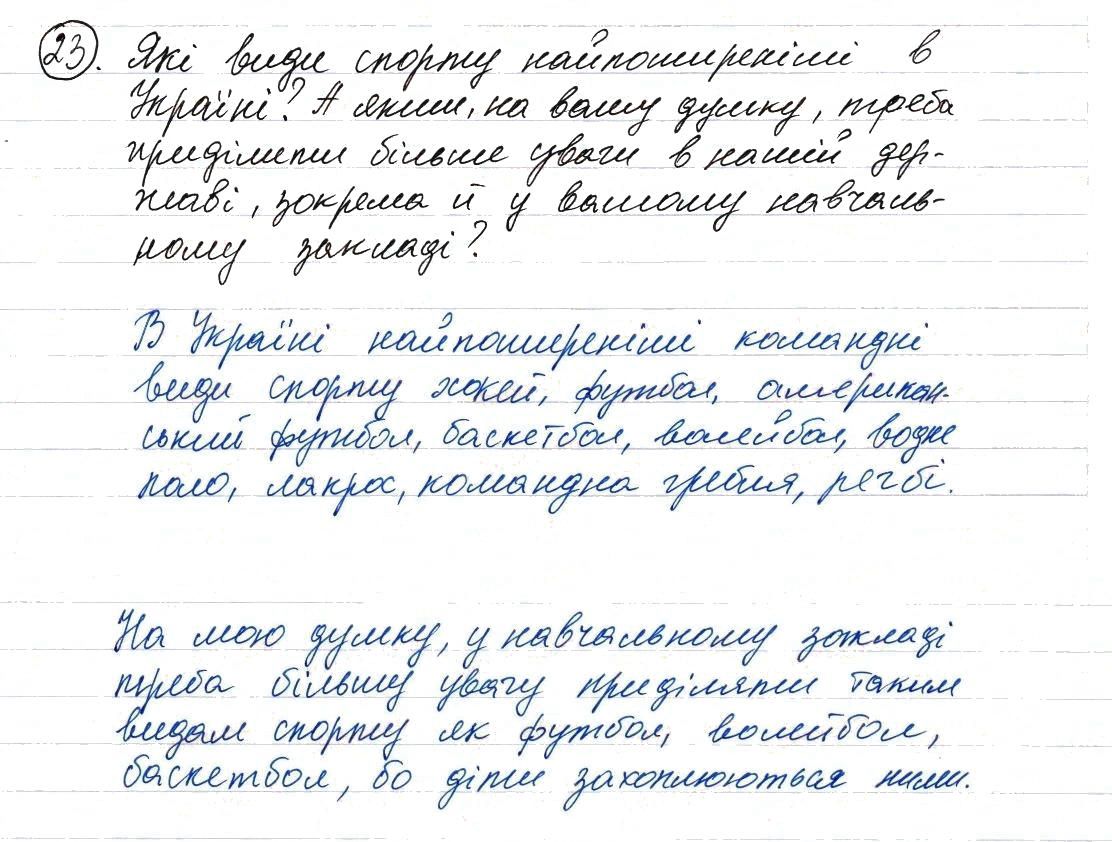 23. Які види спорту найпоширеніші в
Україні? А яким, на вашу думку, треба
приділяти більше уваги в нашій дер-
жаві, зокрема й у вашому навчаль-
ному закладі?
В Україні найпоширеніші командні
види спорту хокей, футбол, американ-
ський футбол, баскетбол, волейбол, водне
поло, лакрос, командна гребля, регбі.
На мою думку, у навчальному закладі
треба більшу увагу приділяти таким
видам спорту як футбол, волейбол,
баскетбол, бо діти захоплюються ними.